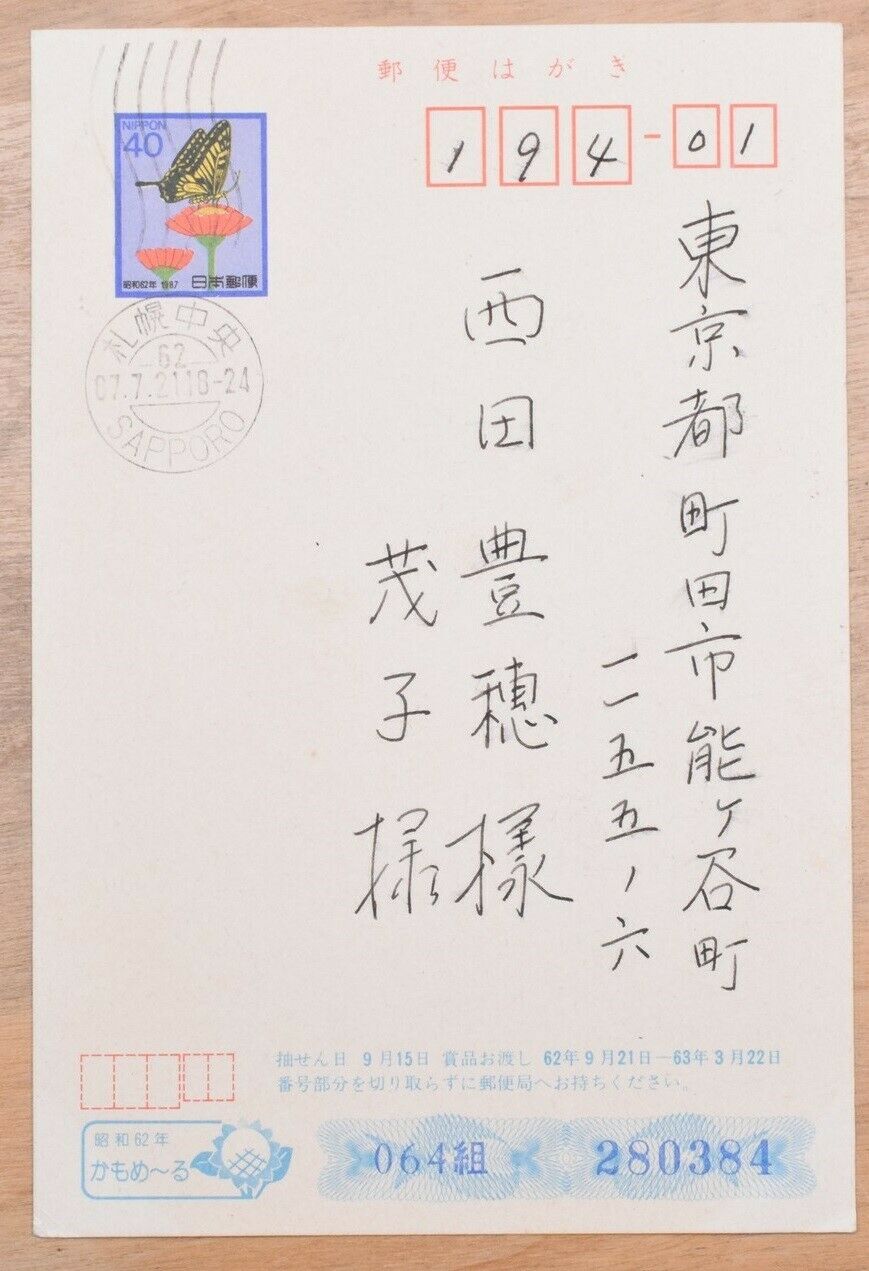 郵便はがき
NIPPON
40
昭和62年 1987 日本郵便
194-01
札幌中央
62
87.7.21 18-24
SAPPORO
東京都町田市能ヶ谷町
一一五五ノ六
西田豊穂様
茂子様
抽せん日 9月15日 賞品お渡し 62年9月21日―63年3月22日
番号部分を切り取らずに郵便局へお持ちください。
昭和62年
かもめ~る
064組 280384